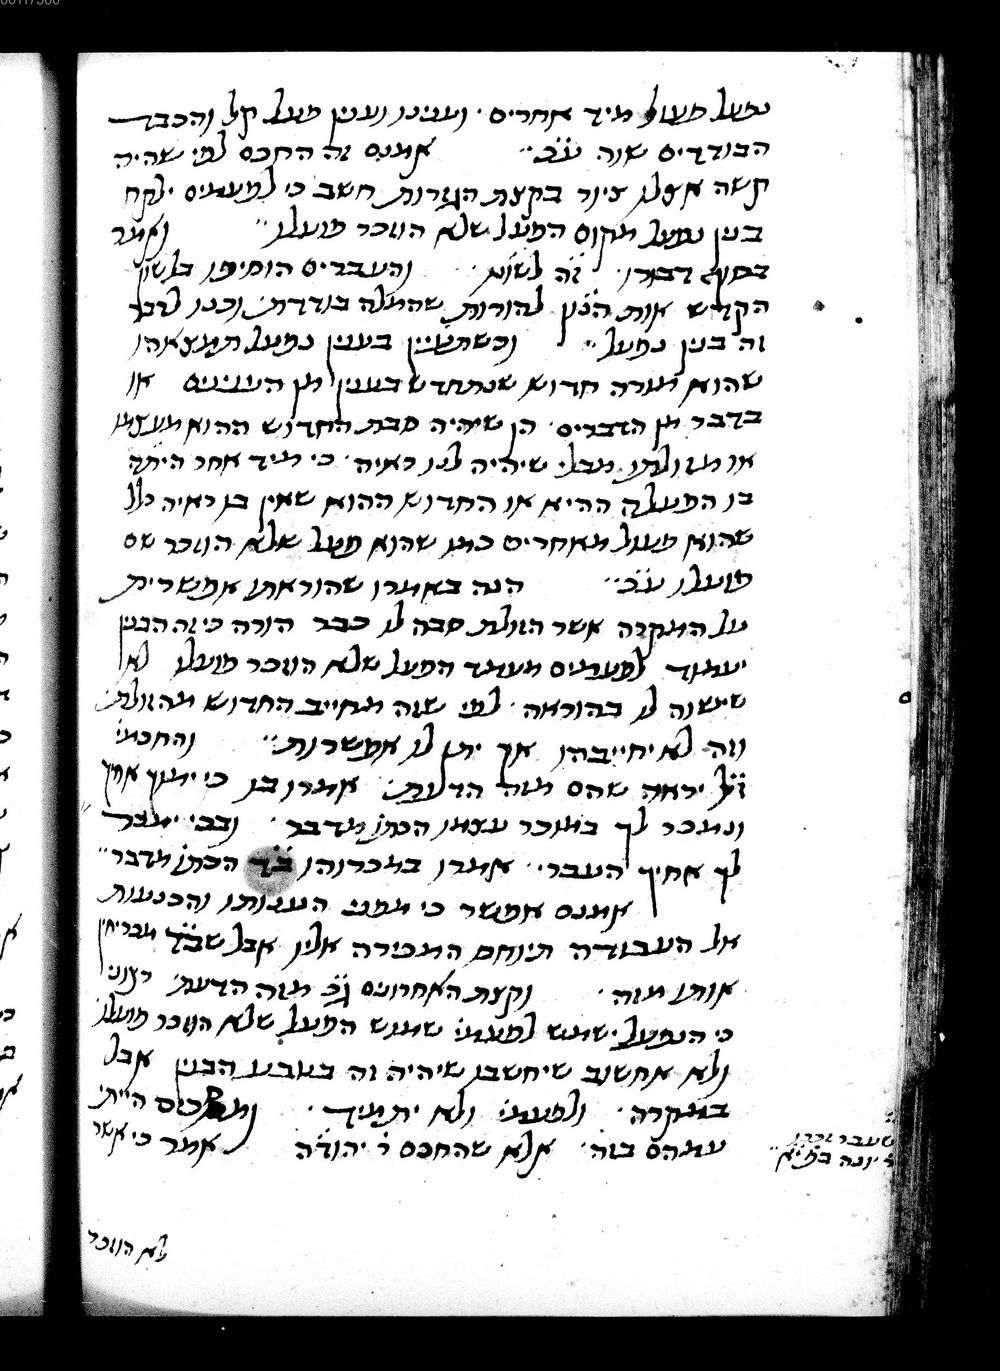 נפעל פעול מיד אחרים · ועניינו וענין פועל קל והכבד
הבודדים שוה ע״כ ·· אמנם זה החכם לפי שהיה
קשה אצלו ציור בקצת הגזרות חשב כי לפעמים ילקח
בנין נפעל מקום הפעל שלא הוזכר פועלו ·· ואמר
בסוף דבורו · ז״ה לשונו · והעבריים הוסיפו בלשון
הקדש אות הנון להורות שהמלה בודדת · וכנו לדבר
זה בנין נפעל ·· וכשתעיין בענין נפעל תמצאהו
שהוא מורה חדוש שנתחדש בענין מן הענינים או
בדבר מן הדברים · הן שיהיה סבת החדוש ההוא מעצמו
או מזולתו מבלי שיהיה לנו ראיה · כי מיד אחר היתה
בו הפעלה ההיא או החדוש ההוא שאין בו ראיה כלל
שהוא פעול מאחרים כמו שהוא פעל שלא הוזכר שם
פועלו ע״כ ·· הנה באמרו שהוראתו אפשרית
על המקרה אשר הזולת סבה לו כבר הורה כי זה הבנין
יעמוד לפעמים מעמד הפעל שלא הוזכר פועלו לא
שישוה לו בהוראה · לפי שזה מחייב החדוש מהזולת ·
וזה לא יחייבהו אך יתן לו אפשרות ·· והחכמי׳
ז״ל יראה שהם מזה הדעת · אמרו בו כי ימוך אחיך
ונמכר לך במוכר עצמו הכתו׳ מדבר · ובכי ימכר
לך אחיך העברי · אמרו במכרוהו ב״ד הכתו׳ מדבר ··
אמנם אפשר כי מפני העצותו והכנעות
אל העבודה תיוחס המכירה אליו אבל שב״ד מכריחין
אותו מזה · וקצת האחרונים ג״כ מזה הדעת · רצוני
כי הנפעל ישמש לפעמי׳ שמוש הפעל שלא הוזכר פועלו
ולא אחשוב שיחשבו שיהיה זה בטבע הבנין אבל
במקרה · ולפעמי׳ ולא יתמיד · ומסכים הייתי
עמהם בזה · אלא שהחכם ר׳ יהודה אמר כי אשר
שעבר זכרו
ר׳ יונה
לא הוזכר